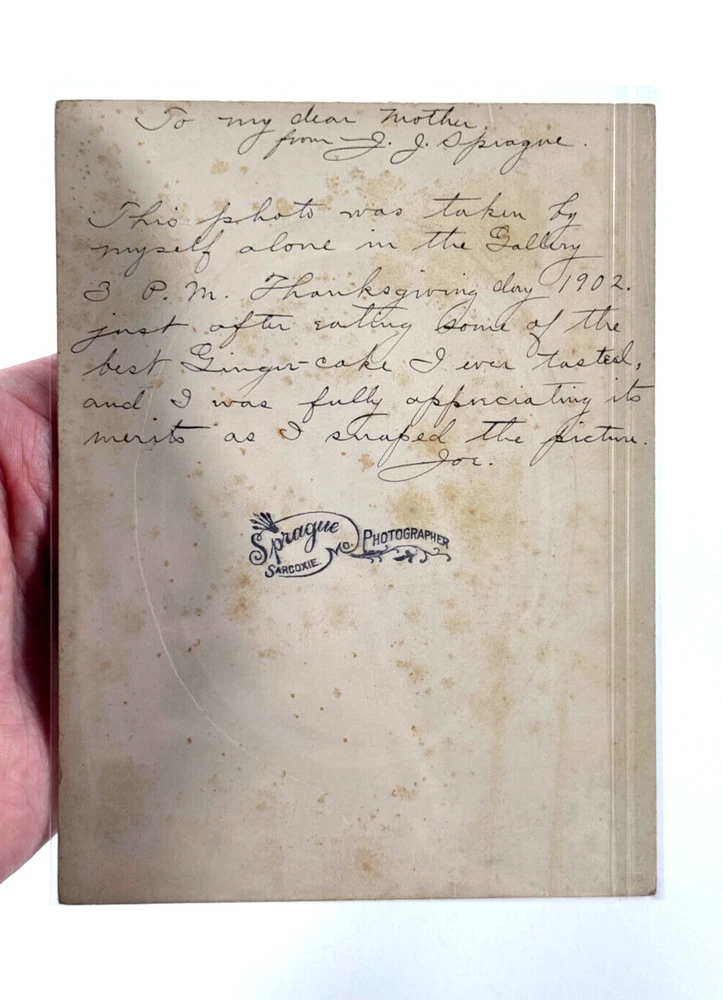 To my dear Mother,
from J. J. Sprague.
This photo was taken by
myself alone in the Gallery
3 P. M. Thanksgiving day 1902.
just after eating some of the
best Ginger-cake I ever tasted,
and I was fully appreciating its
merits as I snaped the picture.
Joe.
Sprague
SARCOXIE. MO. PHOTOGRAPHER